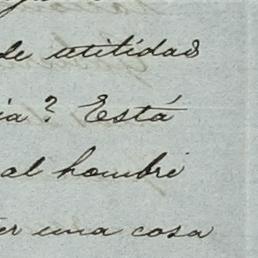 de utilidad
ia? Está
al hombre
er una cosa